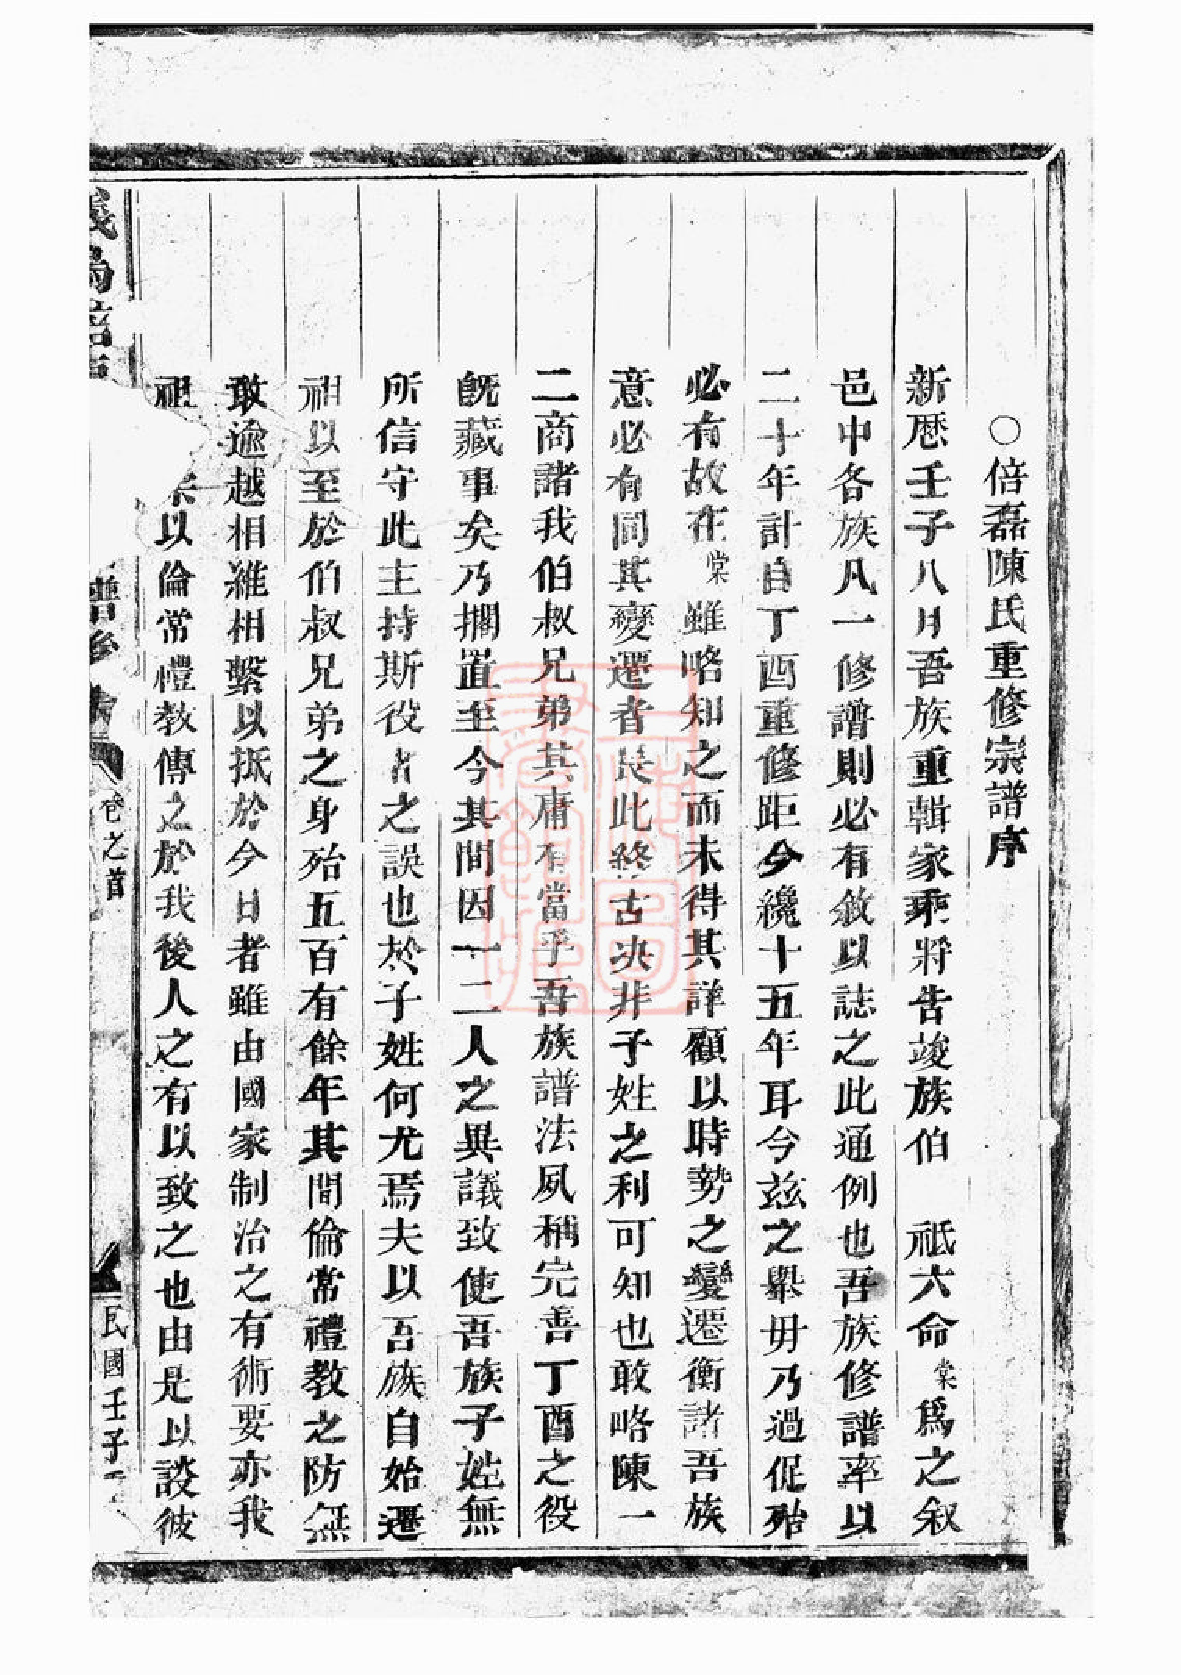 ○倍磊陳氏重修宗譜序
新歷壬子八月吾族重輯家乘將告竣族伯 祇六命棠爲之叙
邑中各族凡一修譜則必有敘以誌之此通例也吾族修譜率以
二十年計自丁酉重修距今纔十五年耳今茲之舉毋乃過促殆
必有故在棠雖略知之而未得其詳顧以時勢之變遷衡諸吾族
意必有同其變遷者長此終古决非子姓之利可知也敢略陳一
二商諸我伯叔兄弟其庸有當乎吾族譜法夙稱完善丁酉之役
既蕆事矣乃擱置至今其間因一二人之異議致使吾族子姓無
所信守此主持斯役者之誤也於子姓何尤焉夫以吾族自始遷
祖以至於伯叔兄弟之身殆五百有餘年其間倫常禮教之防無
敢逾越相維相繫以抵於今日者雖由國家制治之有術要亦我
祖宗以倫常禮教傳之於我後人之有以致之也由是以談彼
義烏倍
譜
卷之首
民國壬子